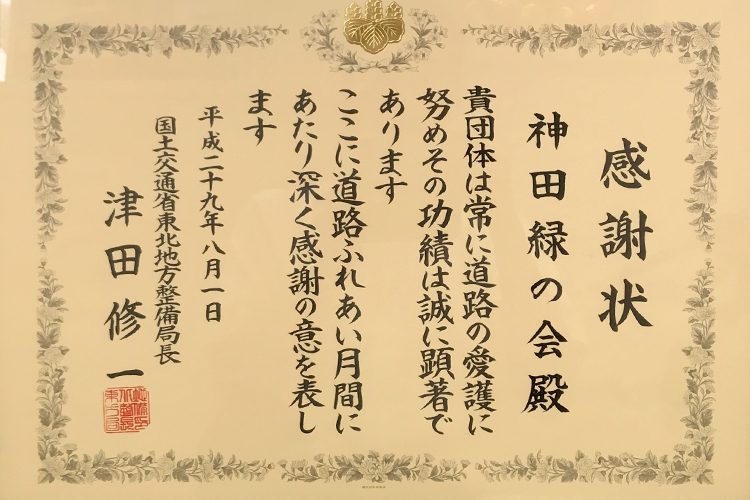 感謝状
神田緑の会殿
貴団体は常に道路の愛護に
努めその功績は誠に顕著で
あります
ここに道路ふれあい月間に
あたり深く感謝の意を表し
ます
平成二十九年八月一日
国土交通省東北地方整備局長
津田修一